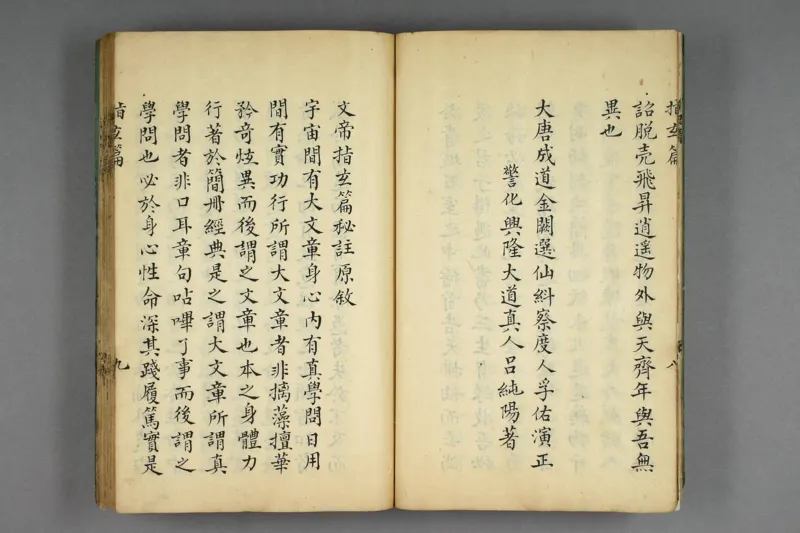 指玄篇
詔脱壳飛昇逍遥物外與天齊年與吾無
異也
大唐成道金闕選仙糾察度人孚佑演正
警化興隆大道真人呂純陽著
八
文帝指玄篇秘註原敘
宇宙間有大文章身心內有真學問日用
間有實功行所謂大文章者非摛藻擅華
矜奇炫異而後謂之文章也本之身體力
行著於簡冊經典是之謂大文章所謂真
學問者非口耳章句呫嗶了事而後謂之
學問也必於身心性命深其踐履篤實是
指玄篇
九